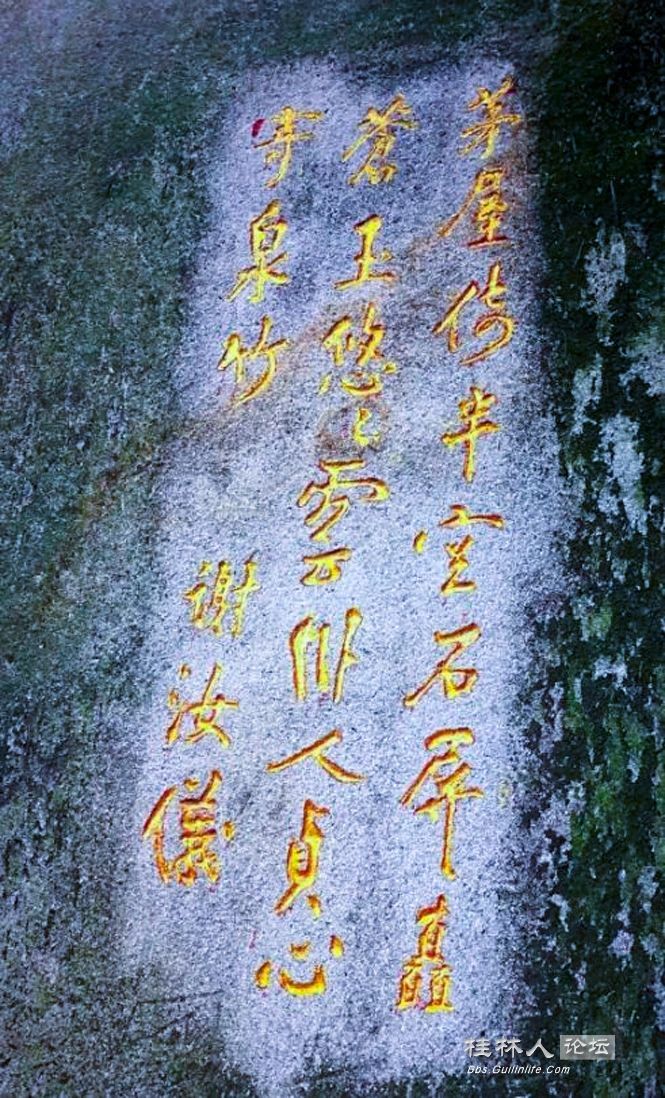 茅屋倚半空石屏矗
蒼玉悠々雲卧人貞心
寄泉竹
謝汝儀
桂林人论坛
Bbs.Guilinlife.com